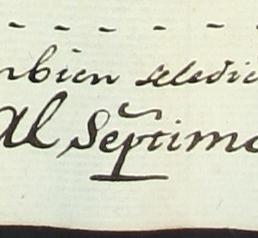 mbien seledic
Al Septimo